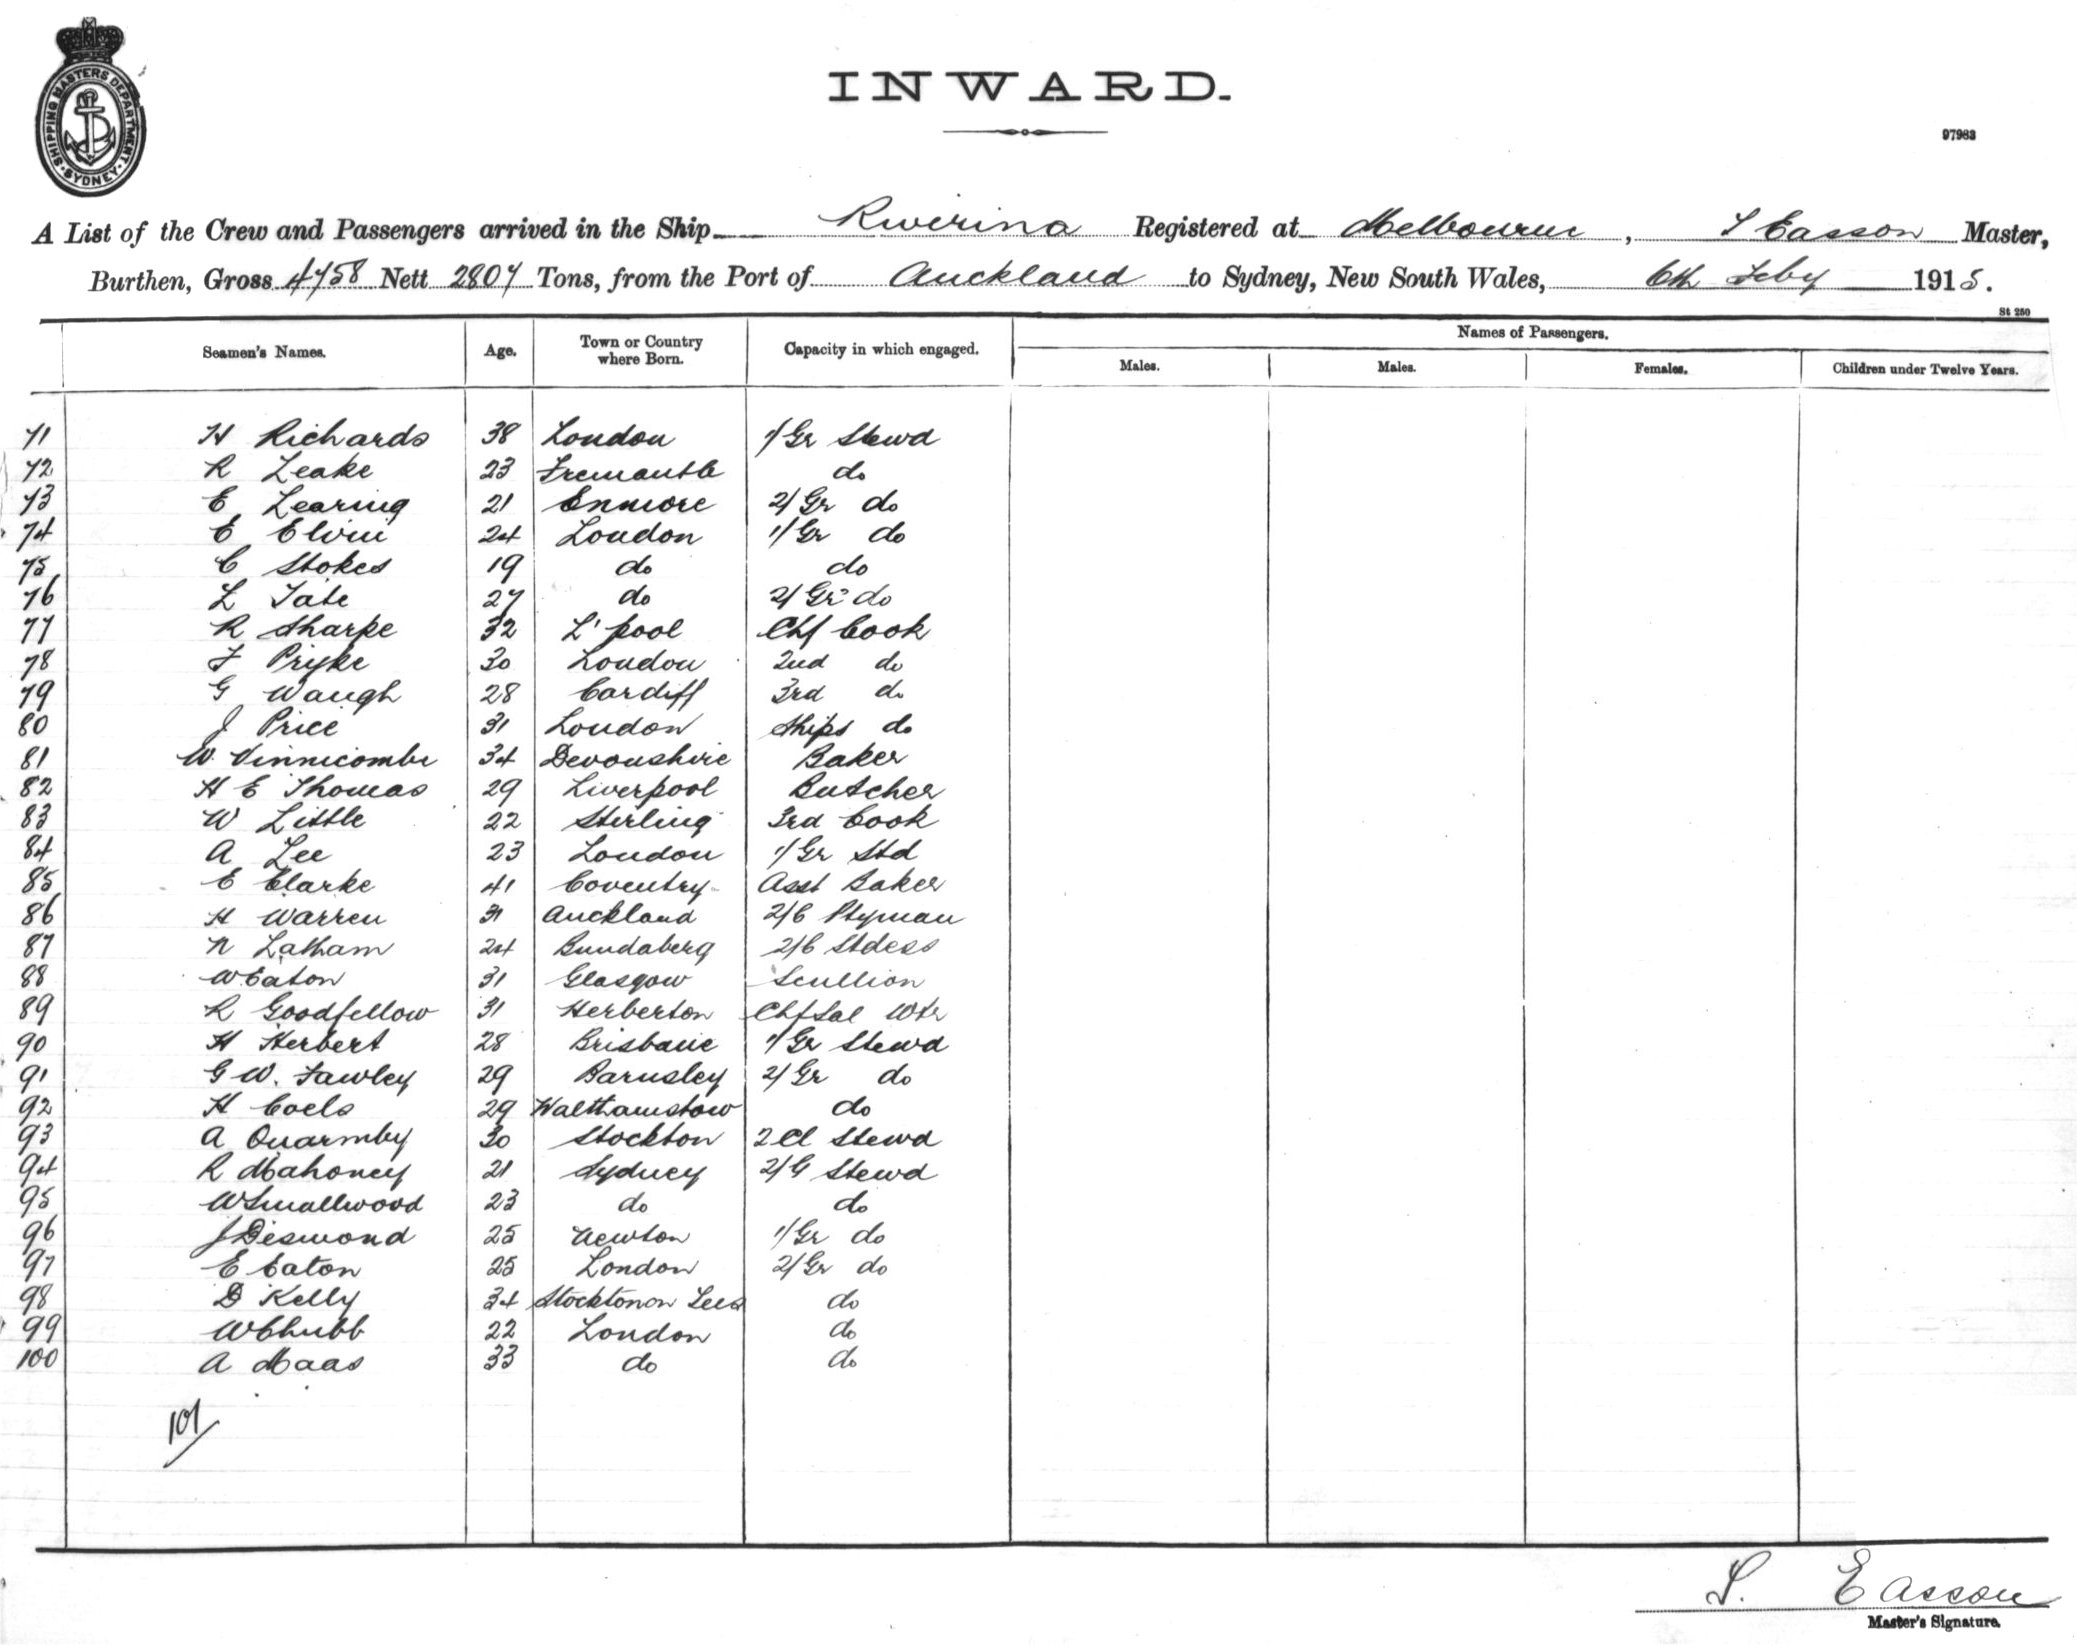 SHIPPING MASTERS DEPARTMENT
SYDNEY
INWARD.
97983
A List of the Crew and Passengers arrived in the Ship Riverina Registered at Melbourne, Easson Master,
Burthen, Gross 4758 Nett 2807 Tons, from the Port of Auckland to Sydney, New South Wales, 6th Feby 1915.
St 250
Seamen's Names. Age. Town or Country where Born. Capacity in which engaged. Names of Passengers.
Males. Males. Females. Children under Twelve Years.
71 H Richards 38 London 1/Gr Stewd
72 R Leake 23 Fremantle do
73 E Learing 21 Enmore 2/Gr do
74 E Elvin 24 London 1/Gr do
75 C Stokes 19 do do
76 L Tate 27 do 2/Gr do
77 R Sharpe 32 L'pool Chf Cook
78 F Pryke 30 London 2nd do
79 G Waugh 28 Cardiff 3rd do
80 J Price 31 London Ships do
81 W. Vinnicombe 34 Devonshire Baker
82 H E Thomas 29 Liverpool Butcher
83 W Little 22 Stirling 3rd Cook
84 A Lee 23 London 1/Gr Std
85 E Clarke 41 Coventry Asst Baker
86 H Warren 31 Auckland 2/C Ptyman
87 N Latham 24 Bundaberg 2/C Stdess
88 W Eaton 31 Glasgow Scullion
89 R Goodfellow 31 Herberton Chf Sal Wtr
90 H Herbert 28 Brisbane 1/Gr Stewd
91 G W. Fawley 29 Barnsley 2/Gr do
92 H Coels 29 Walthamstow do
93 A Quarmby 30 Stockton 2 Cl Stewd
94 R Mahoney 21 Sydney 2/G Stewd
95 W Smallwood 23 do do
96 J Desmond 25 Newton 1/Gr do
97 E Eaton 25 London 2/Gr do
98 D Kelly 34 Stockton on Tees do
99 W Chubb 22 London do
100 A Maas 33 do do
101
S. Easson
Master's Signature.